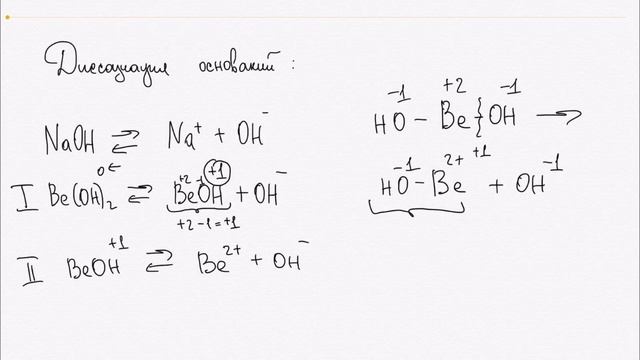 Диссоциация оснований:
NaOH ⇌ Na⁺ + OH⁻
I Be(OH)₂⁰ ⇌ BeOH⁺¹ + OH⁻
+2 -1
+2-1=+1
II BeOH⁺¹ ⇌ Be²⁺ + OH⁻
-1 +2 -1
HO - Be { OH →
-1 2+ +1 -1
HO - Be + OH